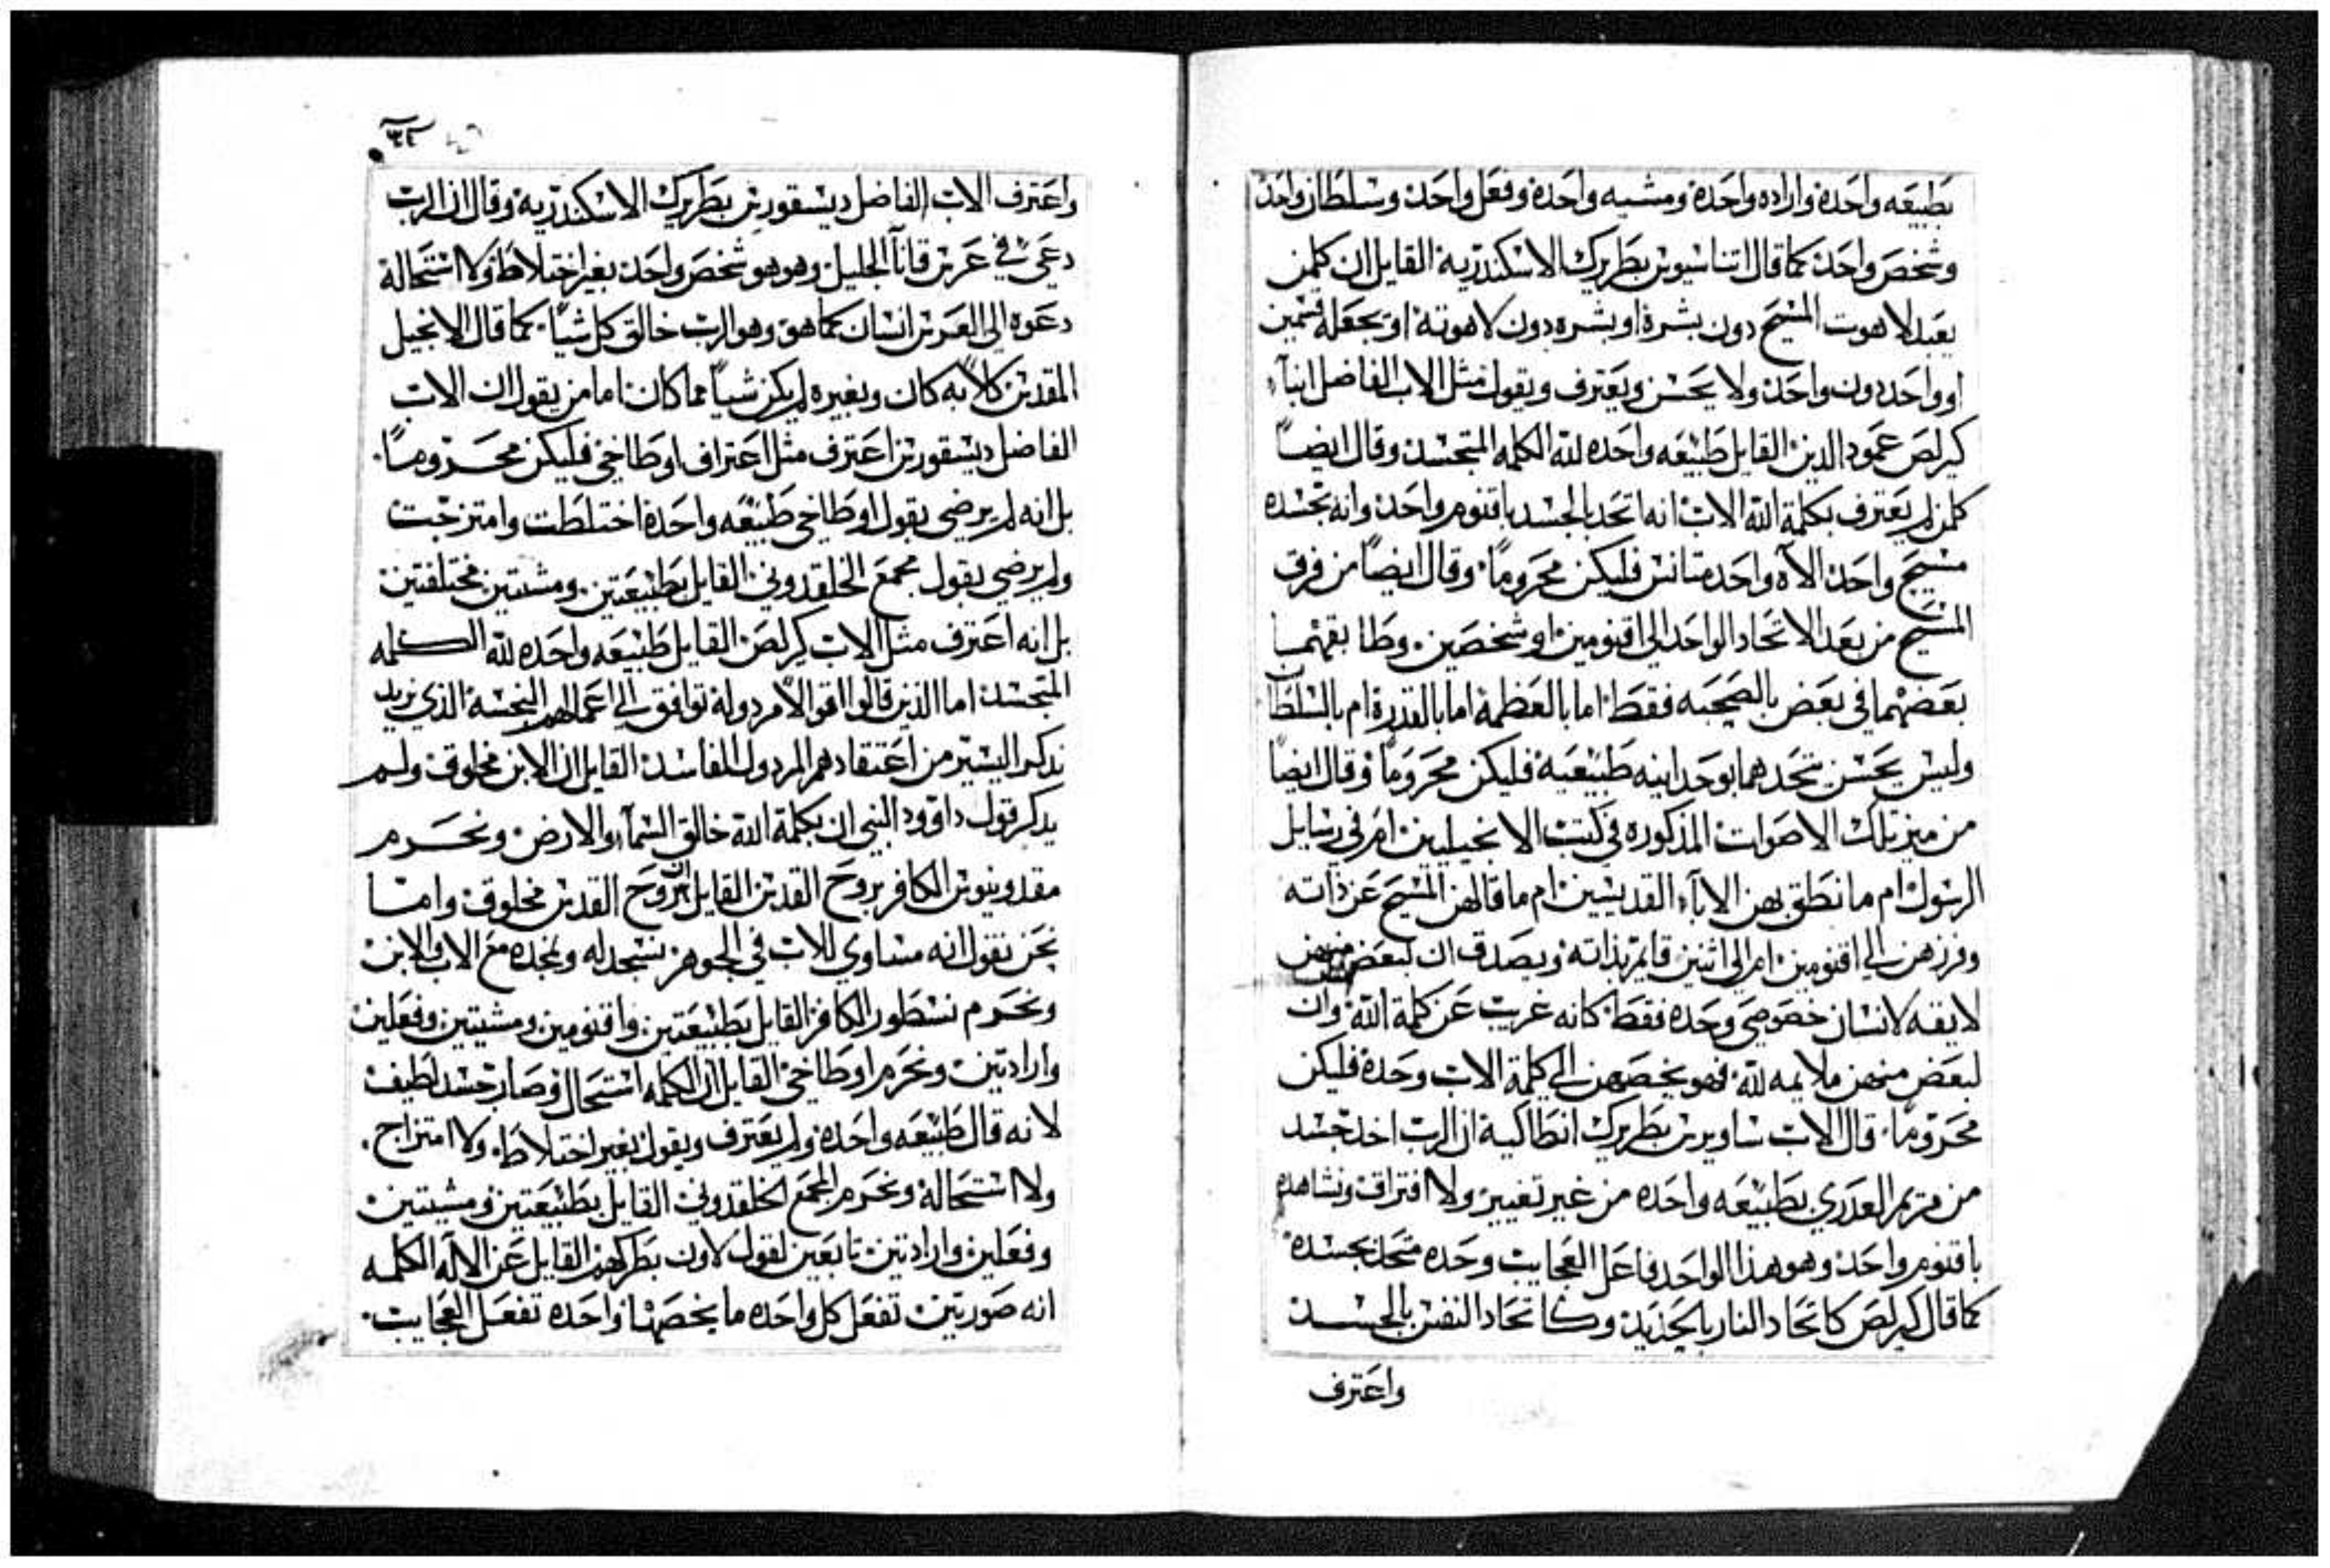 بطبيعه واحده واراده واحدة ومشيه واحدة وفعل واحد وسلطان واحد
وشخص واحد كما قال اتناسيوس بطريرك الاسكندرية القايل ان كلمن
يعبد لاهوت المسيح دون بشرة او بشره دون لاهوته او يجعله قسمين
او واحد دون واحد ولا يحسن ويعترف ويقول مثل الاب الفاضل انبآ
كيرلص عمود الدين القايل طبيعه واحده لله الكلمه المتجسد وقال ايضاً
كلمن لم يعترف بكلمة الله الاب انه اتحد بالجسد باقنوم واحد وانه بجسده
مسيح واحد الآه واحد متانس فليكن محروماً وقال ايضاً من فرق
المسيح من بعد الاتحاد الواحد الى اقنومين او شخصين وطابقهما
بعضهما في بعض بالصحبه فقط اما بالعظمة اما بالقدرة ام بالسلطان
وليس يحسن تتحدهما بوحدانيه طبيعية فليكن محروماً وقال ايضاً
من ميز تلك الاصوات المذكوره في كتب الانجيليين ام في رسايل
الرسول ام ما نطق بهن الابآء القديسين ام ما قالهن المسيح عن ذاته
وفرزهن الي اقنومين ام الى اثنين قايم بذاته ويصدق ان لبعض منهن
لايقه لانسان خصوصي وحده فقط كانه غريب عن كلمة الله وان
لبعض منهن ملايمه لله فهو يخصهن الي كلمة الاب وحدة فليكن
محروماً قال الاب ساويرس بطريرك انطاكية ان الرب اخد جسد
من مريم العدري بطبيعه واحده من غير تغيير ولا افتراق ونشاهده
باقنوم واحد وهو هذا الواحد فاعل العجايب وحده متحد بجسده
كما قال كيرلص كاتحاد النار بالحديد وكاتحاد النفس بالجسد
واعترف
٣٤
واعترف الاب الفاضل ديسقورس بطريرك الاسكندرية وقال ان الرب
دعي في عرس قاناآ الجليل وهو هو شخص واحد بغير اختلاط ولا استحالة
دعوه الى العرس انسان كما هو وهو الرب خالق كل شياً كما قال الانجيل
المقدس كلاً به كان وبغيره لم يكن شياً مما كان اما من يقول ان الاب
الفاضل ديسقورس اعترف مثل اعتراف اوطاخي فليكن محروماً
بل انه لم يرضي بقول اوطاخي طبيعه واحدة اختلطت وامتزجت
ولم يرضي بقول مجمع الخلقدوني القايل بطبيعتين ومشيتين مختلفتين
بل انه اعترف مثل الاب كرلص القايل طبيعه واحده لله الكلمه
المتجسد اما الذين قالوا اقوالاً مردولة توافق الي اعمالهم النجسة الذي نريد
ندكر اليسير من اعتقادهم المردول الفاسد القايل ان الابن مخلوق ولم
يدكر قول داوود النبي ان بكلمة الله خالق السمآء والارض ونحرم
مقدونيوس الكافر بروح القدس القايل ان روح القدس مخلوق واما
نحن نقول انه مساوي للاب في الجوهر نسجد له ونمجده مع الاب والابن
ونحرم نسطور الكافر القايل بطبيعتين واقنومين ومشيتين وفعلين
وارادتين ونحرم اوطاخي القايل ان الكلمه استحال وصار جسد لطيف
لانه قال طبيعه واحدة ولم يعترف ويقول بغير اختلاط ولا امتزاج
ولا استحالة ونحرم المجمع الخلقدوني القايل بطبيعتين ومشيتين
وفعلين وارادتين تابعين لقول لاون بطركهم القايل عن الاله الكلمه
انه صورتين تفعل كل واحده ما يخصها واحده تفعل العجايب